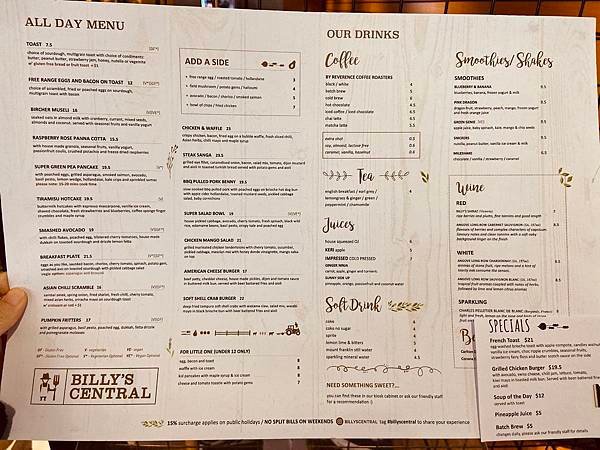 ALL DAY MENU
TOAST 7.5
choice of sourdough, multigrain toast with choice of condiments:
butter, peanut butter, strawberry jam, honey, nutella or vegemite
w/ gluten free bread or fruit toast +1
FREE RANGE EGGS AND BACON ON TOAST 12
choice of scrambled, fried or poached eggs on sourdough,
multigrain toast with bacon
BIRCHER MUSELI 16
soaked oats in almond milk with cranberry, currant, mixed seeds,
almonds and coconut, served with seasonal fruits and vanilla yogurt
RASPBERRY ROSE PANNA COTTA 15.5
with house made granola, seasonal fruits, vanilla yogurt,
passionfruit coulis, crushed pistachio and freeze dried raspberries
SUPER GREEN PEA PANCAKE 19.5
with poached eggs, grilled asparagus, smoked salmon, avocado,
basil pesto, lemon wedge, hollandaise, kale crisps and sprinkled sumac
please note: 15-20 mins cook time
TIRAMISU HOTCAKE 19.5
buttermilk hotcakes with espresso mascarpone, vanilla ice cream,
shaved fresh chocolate, strawberries and blueberries, coffee sponge finger
crumbles and maple syrup
SMASHED AVOCADO 19
with chilli flakes, poached egg, blistered cherry tomatoes, house made
dukkah on toasted sourdough and drizzle lemon fetta
BREAKFAST PLATE 21.5
eggs as you like, smoked bacon, chorizo, cherry tomato, spinach, potato gem,
struddled
and on toasted sourdough with pickled cabbage salad
ASIAN CHILI SCRAMBLE 16
cental sense, spring onion, fried shallot, fresh chilli, cherry tomato,
mixed asian herbs, sriracha mayo on sourdough toast
w/ croissant or roll +1
PUMPKIN FRITTERS 17
with grilled asparagus, basil pesto, poached egg, dukkah, fetta drizzle
and pomegranate molasses
GF - Gluten Free
V - vegetarian
VE - vegan
BILLY'S
CENTRAL
ADD A SIDE
free range egg / roasted tomato / hollandaise 3
field mushroom / potato gems / haloumi 4
avocado / bacon / chorizo / smoked salmon 5
bowl of chips / fried chicken 7
CHICKEN & WAFFLE 23
crispy chicken, bacon, fried egg on a bubble waffle, fresh sliced chilli,
Asian herbs, chilli mayo and maple syrup
STEAK SANGA 23.5
grilled eye fillet, caramelised onion, bacon, salad mix, tomato, dijon mustard
and aioli in toasted turkish bread served with potato gems
BBQ PULLED PORK BENNY 19.5
slow cooked bbq pulled pork with poached egg on brioche hot dog bun
with apple cider hollandaise, toasted mustard seeds, pickled cabbage
salad, baby cornichons
SUPER SALAD BOWL 19
house pickled cabbage, avocado, cherry tomato, fresh spinach, black wild
rice, edamame beans, basil pesto, crispy kale and poached egg
CHICKEN MANGO SALAD 21
grilled marinated chicken tenderloins with cherry tomato, cucumber,
pickled cabbage, mesclun mix with honey dodge vinaigrette, mango salsa
on top
AMERICAN CHEESE BURGER 17
beef patty, cheddar cheese, house made pickles, dijon and tomato sauce
in buttered milk bun, served with beer battered fries and aioli
SOFT SHELL CRAB BURGER 22
deep fried tempura soft shell crab with edamame slaw, salad mix, wasabi
mayo in black brioche bun with beer battered fries and aioli
FOR LITTLE ONE (UNDER 12 ONLY)
egg, bacon and toast 8
waffle with ice cream 8
kid pancakes with maple syrup & ice cream 8
cheese and tomato toastie with potato gems 7
OUR DRINKS
Coffee
BY REVERENCE COFFEE ROASTERS
black / white 4
batch brew 5
cold brew 5
hot chocolate 4.5
iced coffee / iced chocolate 6.5
chai latte 5
matcha latte 5.5
extra shot 0.5
soy, almond, lactose free 0.6
caramel, vanilla, hazelnut 0.6
Tea
english breakfast / earl grey / 4
lemongrass & ginger / green /
peppermint / chamomile
Juices
house squeezed OJ 6
KERI apple 5
IMPRESSED COLD PRESSED 7
GINGER NINJA
carrot, apple, ginger and turmeric
SUNNY SIDE UP
pineapple, orange, passionfruit and coconut water
Soft Drink
coke 4
coke no sugar 4
sprite 4
lemon lime & bitters 5
mount franklin still water 4
sparkling mineral water 4.5
NEED SOMETHING SWEET?...
you can find these in our kiosk cabinet or ask our friendly staff
for a recommendation :)
Smoothies/ Shakes
SMOOTHIES
BLUEBERRY & BANANA 8.5
blueberries, banana, frozen yogurt & milk
PINK DRAGON 8.5
dragon fruit, strawberry, peach, mango, frozen yogurt
and fresh orange juice
GREEN GENIE 8.5
apple juice, baby spinach, kale, mango & chia seeds
SNICKERS 8.5
nutella, peanut butter, vanilla ice cream & milk
MILKSHAKE 6.5
chocolate / vanilla / strawberry / caramel
Wine
RED
WHITE
SPARKLING
SPECIALS
French Toast $21
egg-washed brioche toast with apple compote, candies walnut
vanilla ice cream, choc ripple crumbles, seasonal fruits,
strawberry fairy floss and butter scotch sauce on the side
Grilled Chicken Burger $19.5
with avocado, swiss cheese, chilli jam, lettuce, tomato,
kiwi mayo in toasted milk bun. Served with beer battered fries
and aioli
Soup of the Day $12
served with toast
Pineapple Juice $5
Batch Brew $5
changes daily, please ask our friendly staff for details.
15% surcharge applies on public holidays / NO SPLIT BILLS ON WEEKENDS
BILLYSCENTRAL tag #billyscentral to share your experience